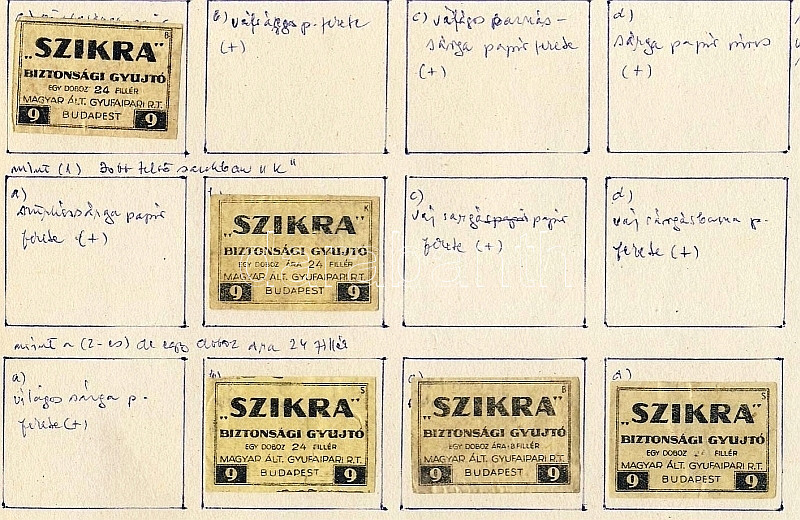 B
„SZIKRA”
BIZTONSÁGI GYUJTÓ
EGY DOBOZ 24 FILLÉR
MAGYAR ÁLT. GYUFAIPARI R.T.
9 BUDAPEST 9
b) p. fekete
(+)
c)
sárga papír fekete
(+)
d)
sárga papír piros
(+)
mint (1) Jobb felső sarokban "K"
a)
papír
fekete (+)
K
„SZIKRA”
BIZTONSÁGI GYUJTÓ
EGY DOBOZ ÁRA 24 FILLÉR
MAGYAR ÁLT. GYUFAIPARI R.T.
9 BUDAPEST 9
c)
papír
fekete (+)
d)
p.
fekete (+)
mint a (2-es) de egy doboz ára 24 fillér
a)
világos sárga p.
fekete (+)
b)
S
„SZIKRA”
BIZTONSÁGI GYUJTÓ
EGY DOBOZ 24 FILLÉR
MAGYAR ÁLT. GYUFAIPARI R.T.
9 BUDAPEST 9
c)
B
„SZIKRA”
BIZTONSÁGI GYUJTÓ
EGY DOBOZ ÁRA FILLÉR
MAGYAR ÁLT. GYUFAIPARI R.T.
9 BUDAPEST 9
d)
S
„SZIKRA”
BIZTONSÁGI GYUJTÓ
EGY DOBOZ FILLÉR
MAGYAR ÁLT. GYUFAIPARI R.T.
9 BUDAPEST 9